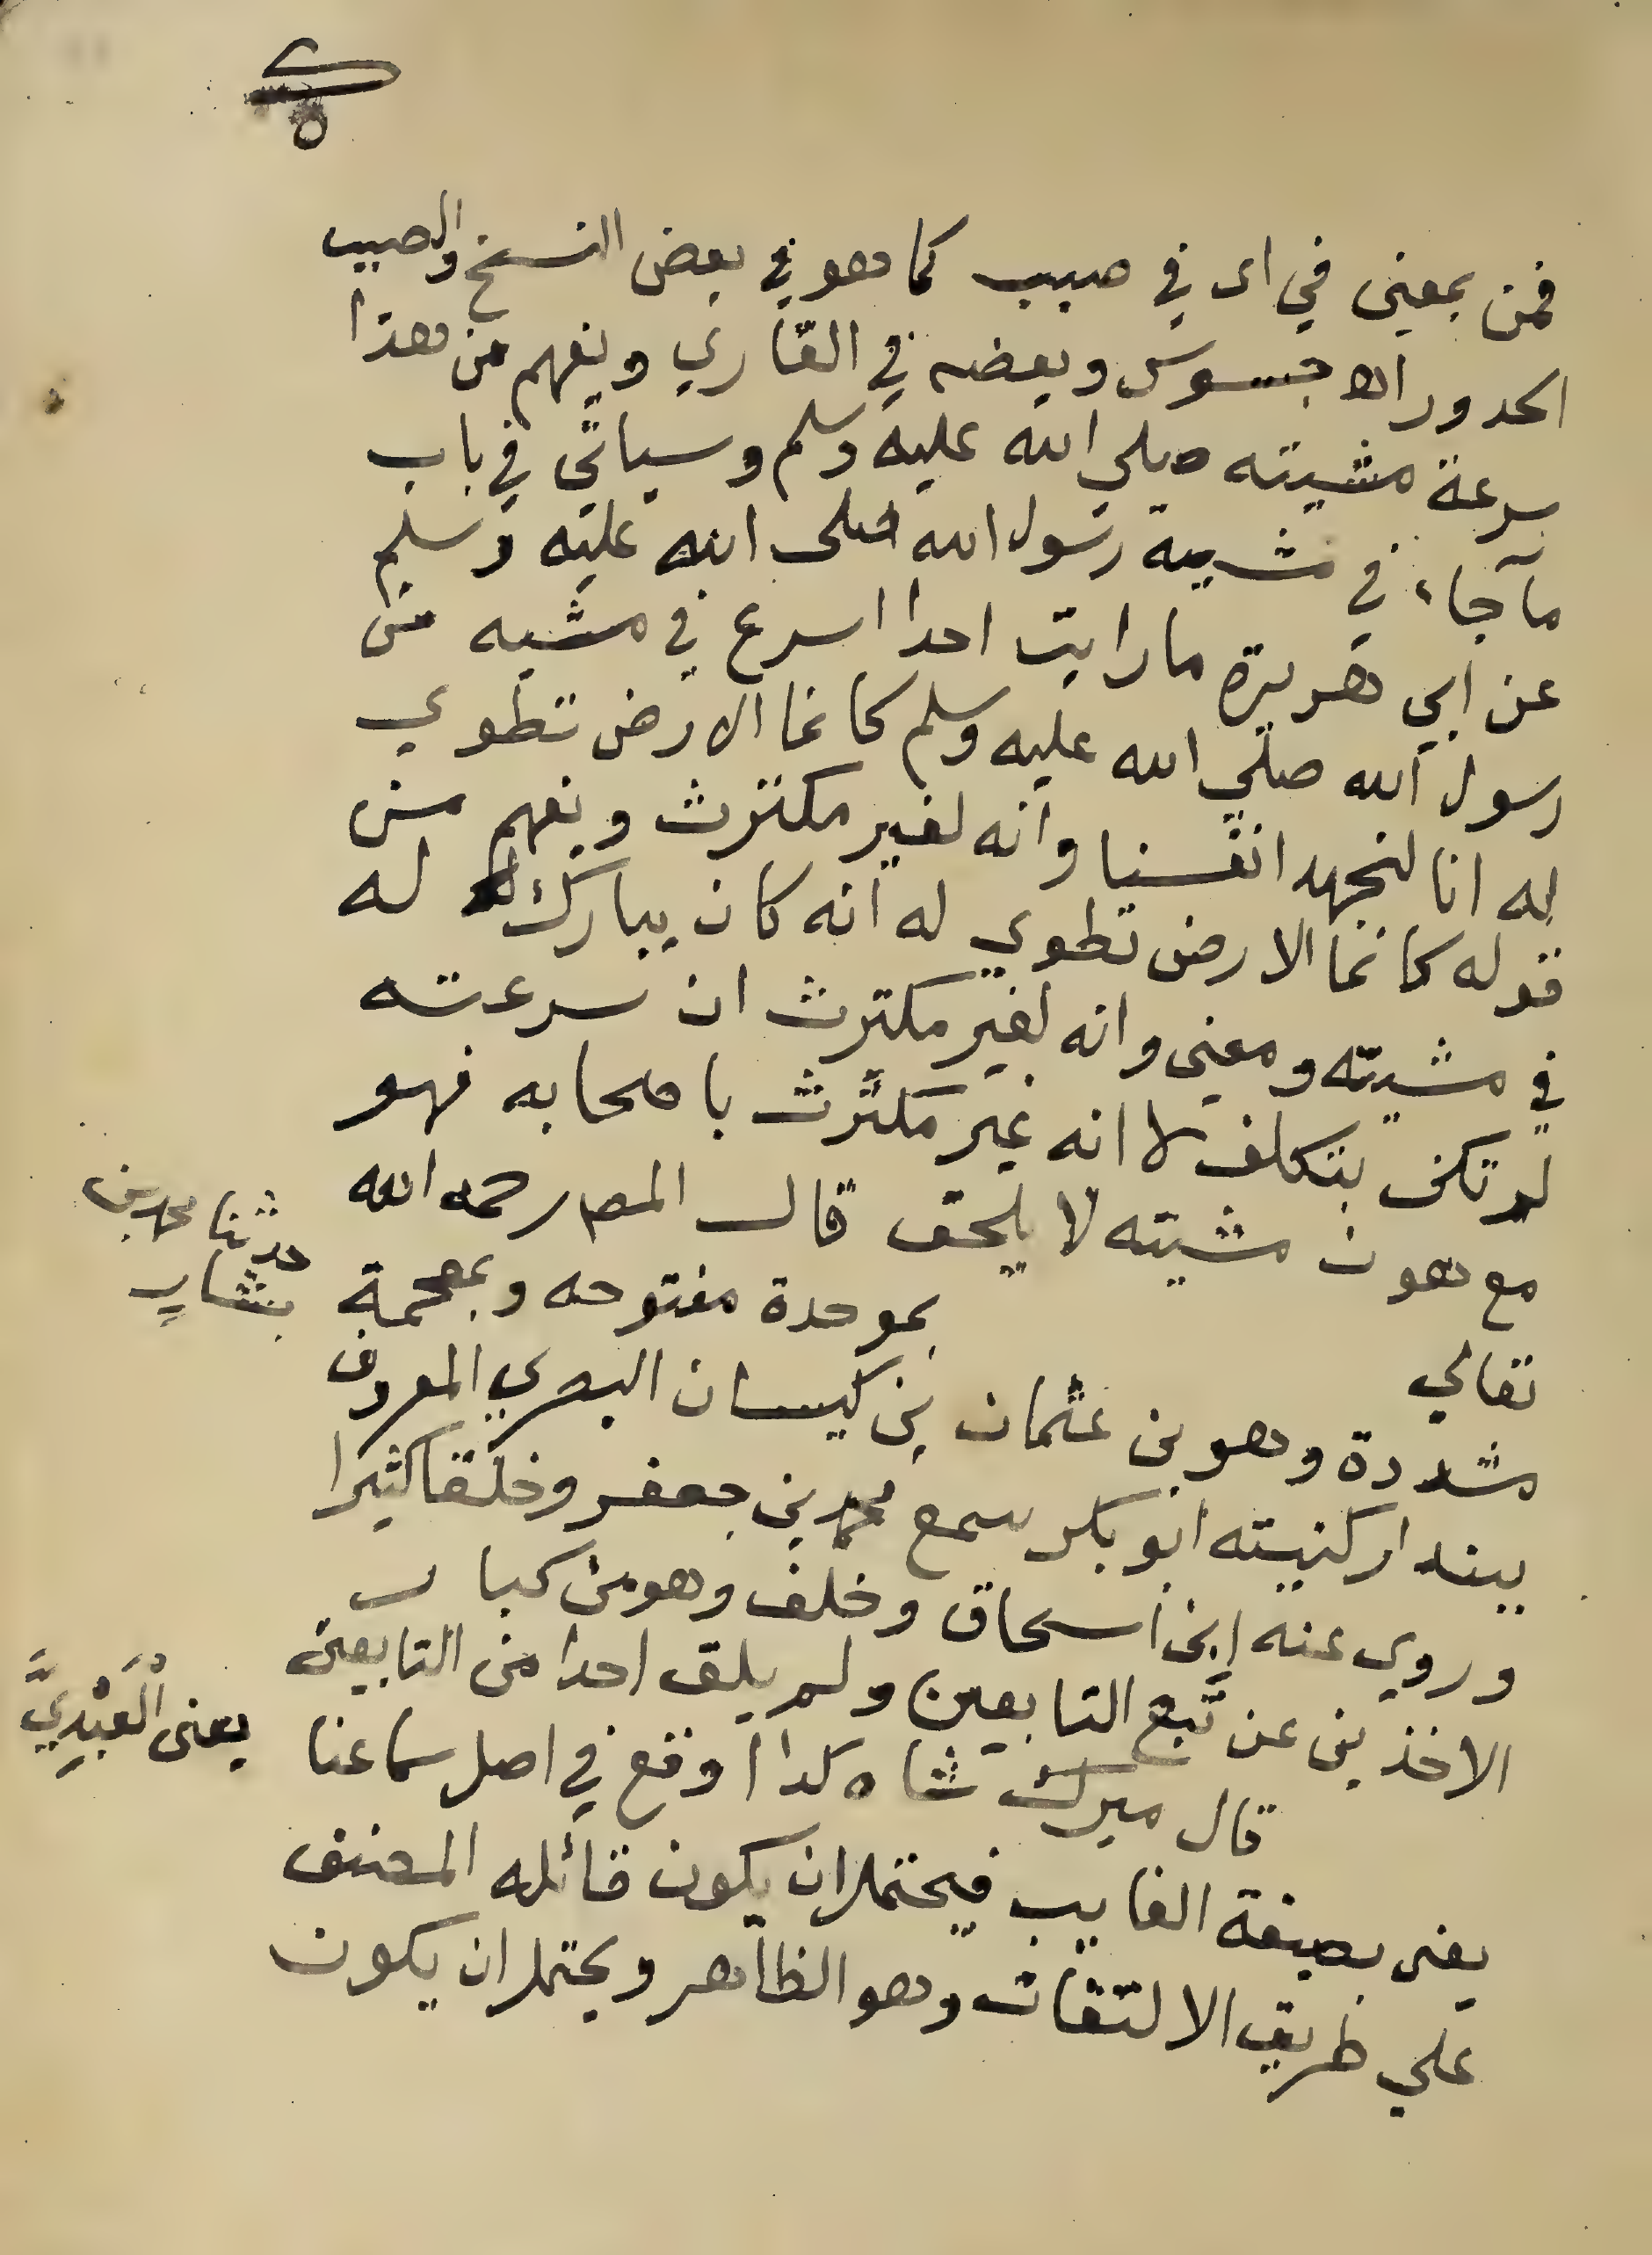 فمن بمعنى في اى في صبب كما هو في بعض النسخ والصبيب
الحدور اه جسوس وبعضه في القاري ويفهم من هذا
سرعة مشيته صلي الله عليه وسلم وسياتي في باب
ماجاء في مشية رسول الله صلى الله عليه وسلم
عن ابي هريرة ما رايت احدا اسرع في مشيه من
رسول الله صلي الله عليه وسلم كانما الارض تطوي
له انا لنجهد انفسنا وانه لغير مكترث ويفهم من
قوله كانما الارض تطوي له انه كان يبارك له
في مشيته ومعنى وانه لغير مكترث ان سرعته
لم تكن بتكلف لا انه غير مكترث باصحابه فهو
مع هون مشيته لا يلحق قال المص رحمه الله
تعالي
حدثنا محمد بن
بشار
بموحدة مفتوحه وبمعجمة
مشددة وهو بن عثمان بن كيسان البصري المعروف
ببندار كنيته ابو بكر سمع محمد بن جعفر وخلقا كثيرا
وروي عنه ابن اسحاق وخلف وهو من كبار
الاخذين عن تبع التابعين ولم يلق احدا من التابعين
يعنى الْعَبْدِيَّ
قال ميرك شاه كذا وقع في اصل سماعنا
يعنى بصيغة الغايب فيحتمل ان يكون قائله المصنف
علي طريق الالتفات وهو الظاهر ويحتمل ان يكون